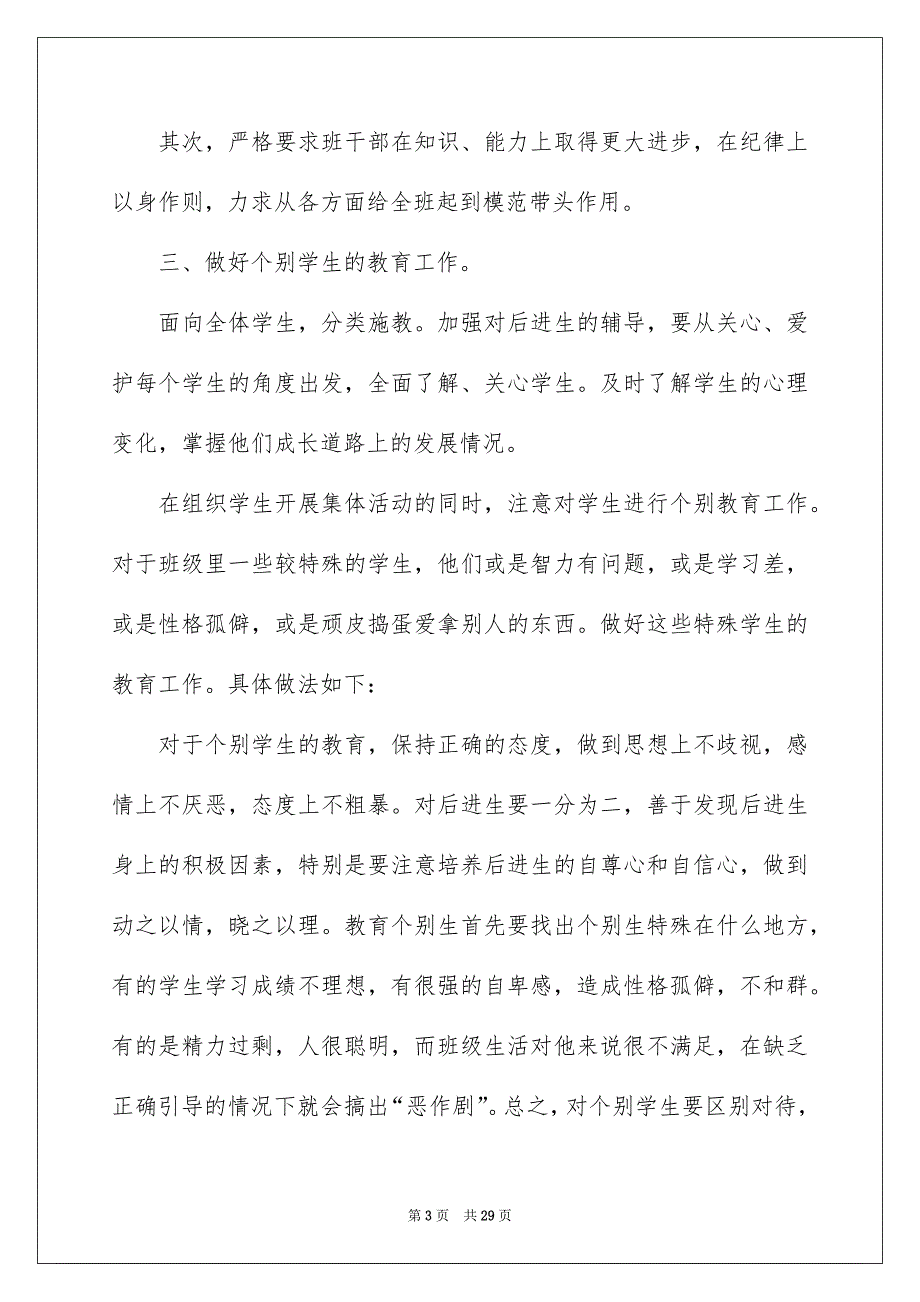 其次，严格要求班干部在知识、能力上取得更大进步，在纪律上
以身作则，力求从各方面给全班起到模范带头作用。
三、做好个别学生的教育工作。
面向全体学生，分类施教。加强对后进生的辅导，要从关心、爱
护每个学生的角度出发，全面了解、关心学生。及时了解学生的心理
变化，掌握他们成长道路上的发展情况。
在组织学生开展集体活动的同时，注意对学生进行个别教育工作。
对于班级里一些较特殊的学生，他们或是智力有问题，或是学习差，
或是性格孤僻，或是顽皮捣蛋爱拿别人的东西。做好这些特殊学生的
教育工作。具体做法如下：
对于个别学生的教育，保持正确的态度，做到思想上不歧视，感
情上不厌恶，态度上不粗暴。对后进生要一分为二，善于发现后进生
身上的积极因素，特别是要注意培养后进生的自尊心和自信心，做到
动之以情，晓之以理。教育个别生首先要找出个别生特殊在什么地方，
有的学生学习成绩不理想，有很强的自卑感，造成性格孤僻，不和群。
有的是精力过剩，人很聪明，而班级生活对他来说很不满足，在缺乏
正确引导的情况下就会搞出“恶作剧”。总之，对个别学生要区别对待，
第 3 页 共 29 页